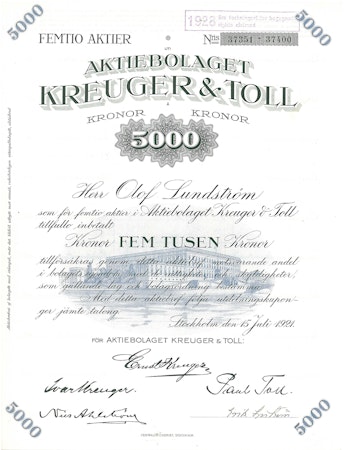 5000
5000
1928
FEMTIO AKTIER
Nris 37351 - 37400
AKTIEBOLAGET
KREUGER & TOLL
Å
KRONOR KRONOR
5000
Herr Olof Lundström
som för femtio aktier i Aktiebolaget Kreuger & Toll
tillfullo inbetalt
Kronor FEM TUSEN Kronor
tillförsäkras genom detta aktiebref motsvarande andel
i bolagets rättigheter och skyldigheter,
som gällande lag och bolagsordning bestämma.
Med detta aktiebref följa utdelningskupon-
ger jämte talong.
Stockholm den 15 Juli 1921.
FOR AKTIEBOLAGET KREUGER & TOLL:
Ernst Kreuger
Ivar Kreuger. Paul Toll
Nils Ahlström
5000
5000